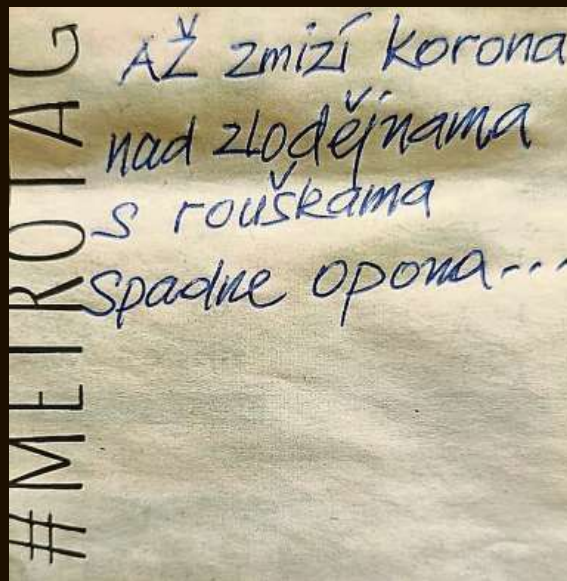 #METROTAG
AŽ zmizí korona
nad zlodějnama
s rouškama
spadne opona...